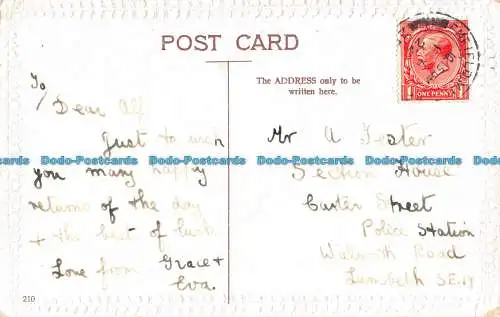 POST CARD
The ADDRESS only to be
written here.
ONE PENNY
To
Dear Alf
Just to wish
you many happy
returns of the day
+ the best of luck
Love from Grace +
Eva.
Mr A Fester
Section House
Carter Street
Police Station
Walworth Road
Lambeth SE.17
210
Dodo-Postcards Dodo-Postcards Dodo-Postcards Dodo-Postcards
Dodo-Postcards Dodo-Postcards Dodo-Postcards Dodo-Postcards